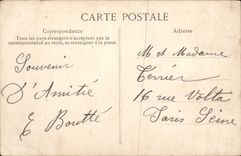 CARTE POSTALE
Correspondance
Tous les pays étrangers n'acceptent pas la
correspondance au recto, se renseigner à la poste.
Adresse
Souvenir
D'Amitié
E Boutté
M et Madame
Terrier
16 rue Volta
Paris Seine